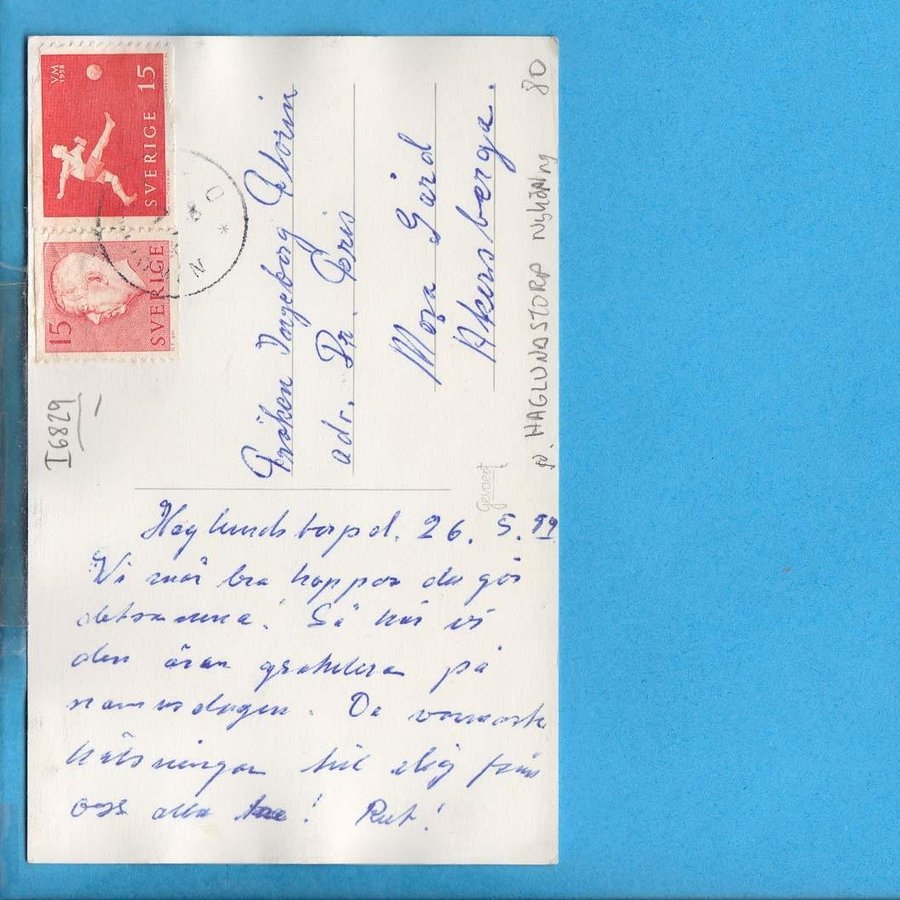 VM
1958
SVERIGE 15
15 SVERIGE
I6829
Fröken Ingeborg Florin
adr. Pr. Pris
Mora Gård
Åkersberga.
p. HAGLUNDSTORP 80
Gevaert
Haglundstorp d. 26. 5. 59
Vi mår bra hoppas du gör
detsamma! Så har vi
den äran gratulera på
namnsdagen. De varmaste
hälsningar till dig från
oss alla! Rut!